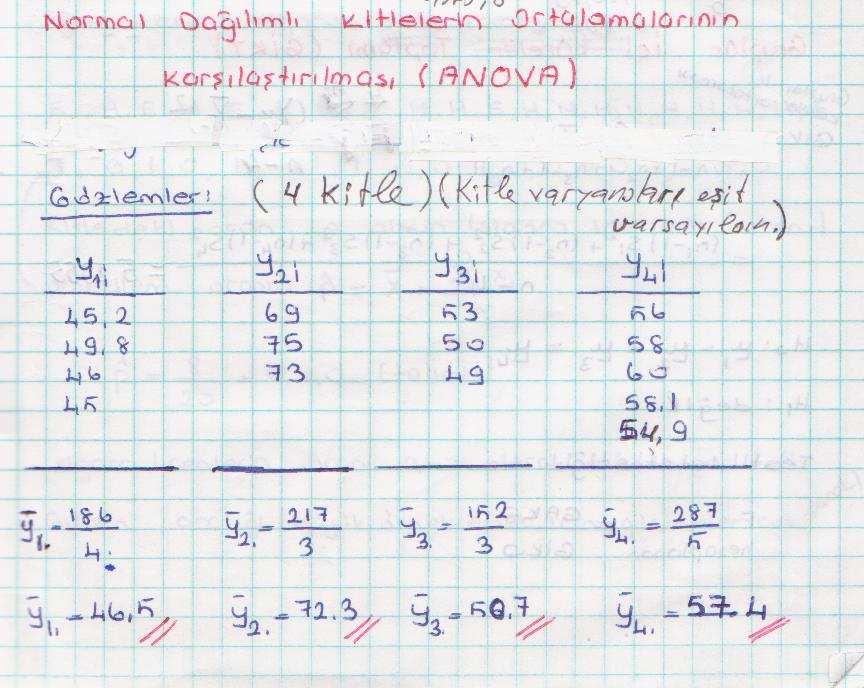 Normal Dağılımlı Kitlelerin Ortalamalarının
Karşılaştırılması (ANOVA)
Gözlemler: (4 Kitle) (Kitle varyansları eşit
varsayılsın.)
y1i y2i y3i y4i
45,2 69 53 56
49,8 75 50 58
46 73 49 60
45 58,1
54,9
ȳ1. = 186/4 ȳ2. = 217/3 ȳ3. = 152/3 ȳ4. = 287/5
ȳ1. = 46,5 ȳ2. = 72.3 ȳ3. = 50,7 ȳ4. = 57.4